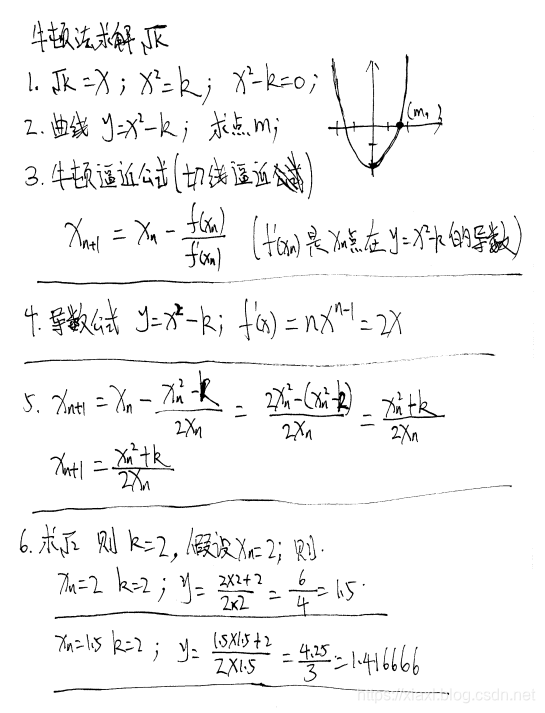 牛顿法求解√k
1. √k = x ; x²=k ; x²-k=0 ;
2. 曲线 y=x²-k ; 求点m ;
(m, )
3. 牛顿逼近公式(切线逼近)
xₙ₊₁ = xₙ - f(xₙ)/f'(xₙ) (f'(xₙ) 是 xₙ点在 y=x²-k 的导数)
4. 导数公式 y=x²-k ; f'(x) = nxⁿ⁻¹ = 2x
5. xₙ₊₁ = xₙ - (xₙ²-k)/(2xₙ) = (2xₙ²-(xₙ²-k))/(2xₙ) = (xₙ²+k)/(2xₙ)
xₙ₊₁ = (xₙ²+k)/(2xₙ)
6. 求√2 则 k=2, 假设xₙ=2; 则.
xₙ=2 k=2 ; y = (2×2+2)/(2×2) = 6/4 = 1.5.
xₙ=1.5 k=2 ; y = (1.5×1.5+2)/(2×1.5) = 4.25/3 = 1.416666